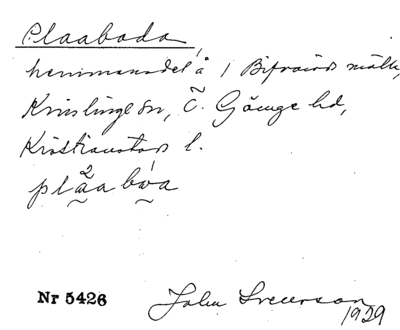 Plaaboda,
hemmansdel å 1 Bifröväds mätl,
Knislinge sn, Ö. Göinge hd,
Kristianstads l.
plaabωa
Nr 5426
John Sverrson
1929